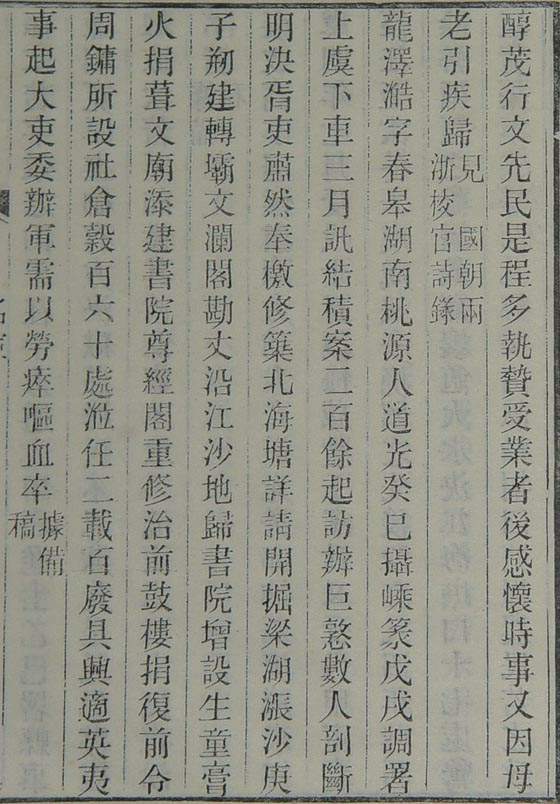 醇茂行文先民是程多執贄受業者後感懷時事又因母
老引疾歸見 國朝兩浙校官詩錄
龍澤澔字春皋湖南桃源人道光癸巳攝嵊篆戊戌調署
上虞下車三月訊結積案二百餘起訪辦巨憝數人剖斷
明決胥吏肅然奉檄修築北海塘詳請開掘梁湖漲沙庚
子刱建轉壩文瀾閣勘丈沿江沙地歸書院增設生童膏
火捐葺文廟添建書院尊經閣重修治前鼓樓捐復前令
周鏞所設社倉穀百六十處涖任二載百廢具興適英夷
事起大吏委辦軍需以勞瘁嘔血卒據備稿